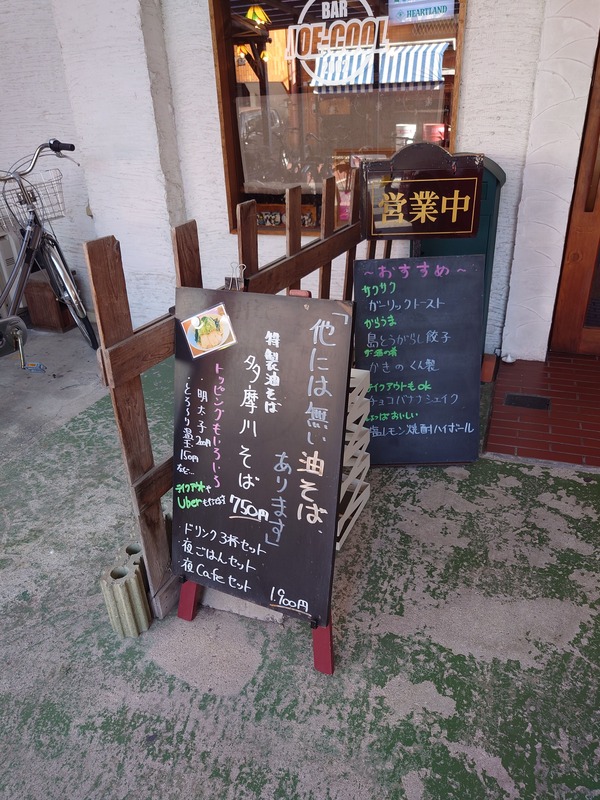 BAR
JOE-COOL
HEARTLAND
営業中
～おすすめ～
サクサク
ガーリックトースト
からうま
島とうがらし餃子
かきのくん製
テイクアウトもok
チョコバナナシェイク
しょっぱおいしい
塩レモン焼酎ハイボール
「他には無い油そば、
あります」
特製油そば
多摩川そば
750円
トッピングもいろいろ
・明太子200円
・とろ〜り温玉
150円
など…
テイクアウトや
Uberも
・ドリンク3杯セット
・夜ごはんセット
・夜Cafeセット
1.900円